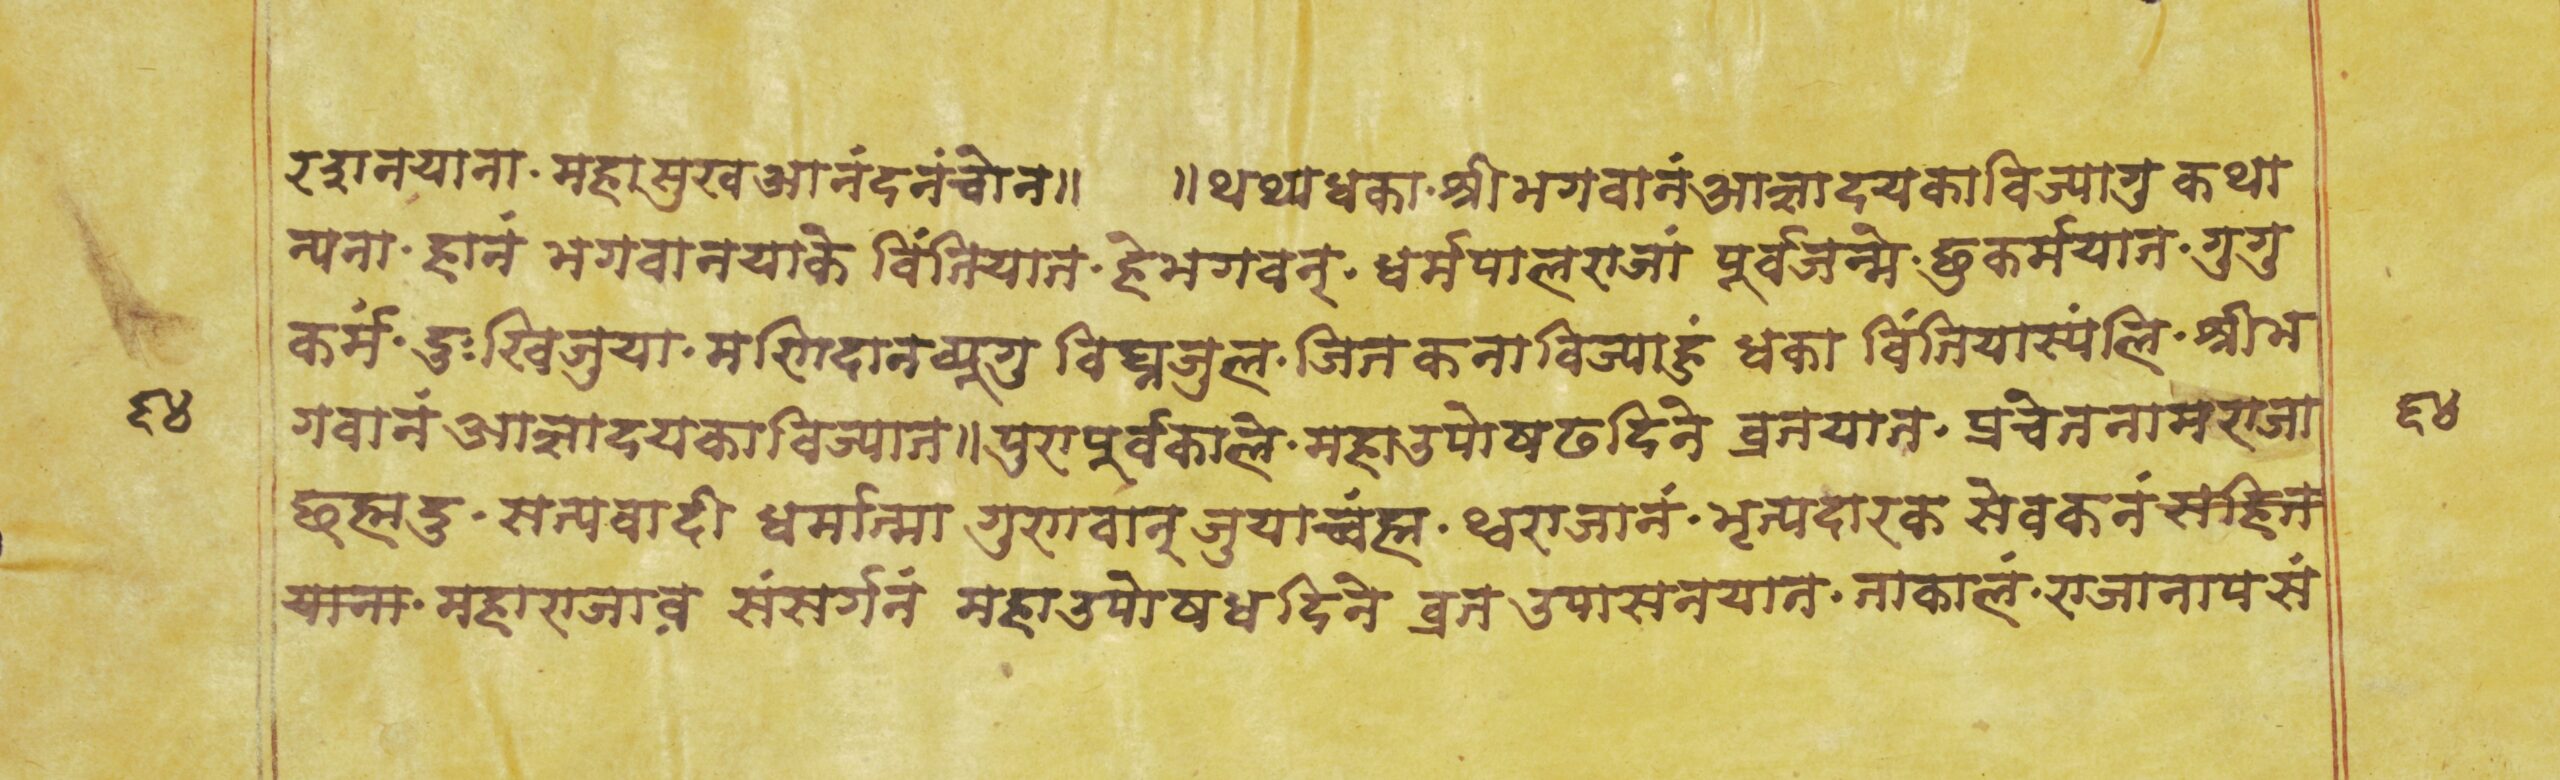 रद्दानयाना॰ महासुखआनंदनंच्वोन॥ ॥थथ्याधका॰ श्रीभगवानंआज्ञादयकाविज्यागु कथा
न्यना॰ हानं भगवानयाके विंतियात॰ हेभगवन्॰ धर्मपालराजां पूर्वजन्मे॰ छुकर्मयात॰ गुगु
कर्मं॰ दुःखिजुया॰ मणिदानब्यूगु विघ्नजुल॰ जितकनाविज्याहुं धका विंतियास्यंलि॰ श्रीभ
गवानं आज्ञादयकाविज्यात॥ पुरापूर्वकाले॰ महाउपोषढदिने व्रतयात॰ प्रचेतनामराजा
छह्मदु॰ सत्यवादी धर्मात्मा गुणवान् जुयाच्वंह्म॰ थ्वराजानं॰ भृत्यदारक सेवकनं सहित
याना॰ महाराजाव संसर्गनं महाउपोषधदिने व्रत उपासनयात॰ ताकालं॰ राजानापसं
६४
६४